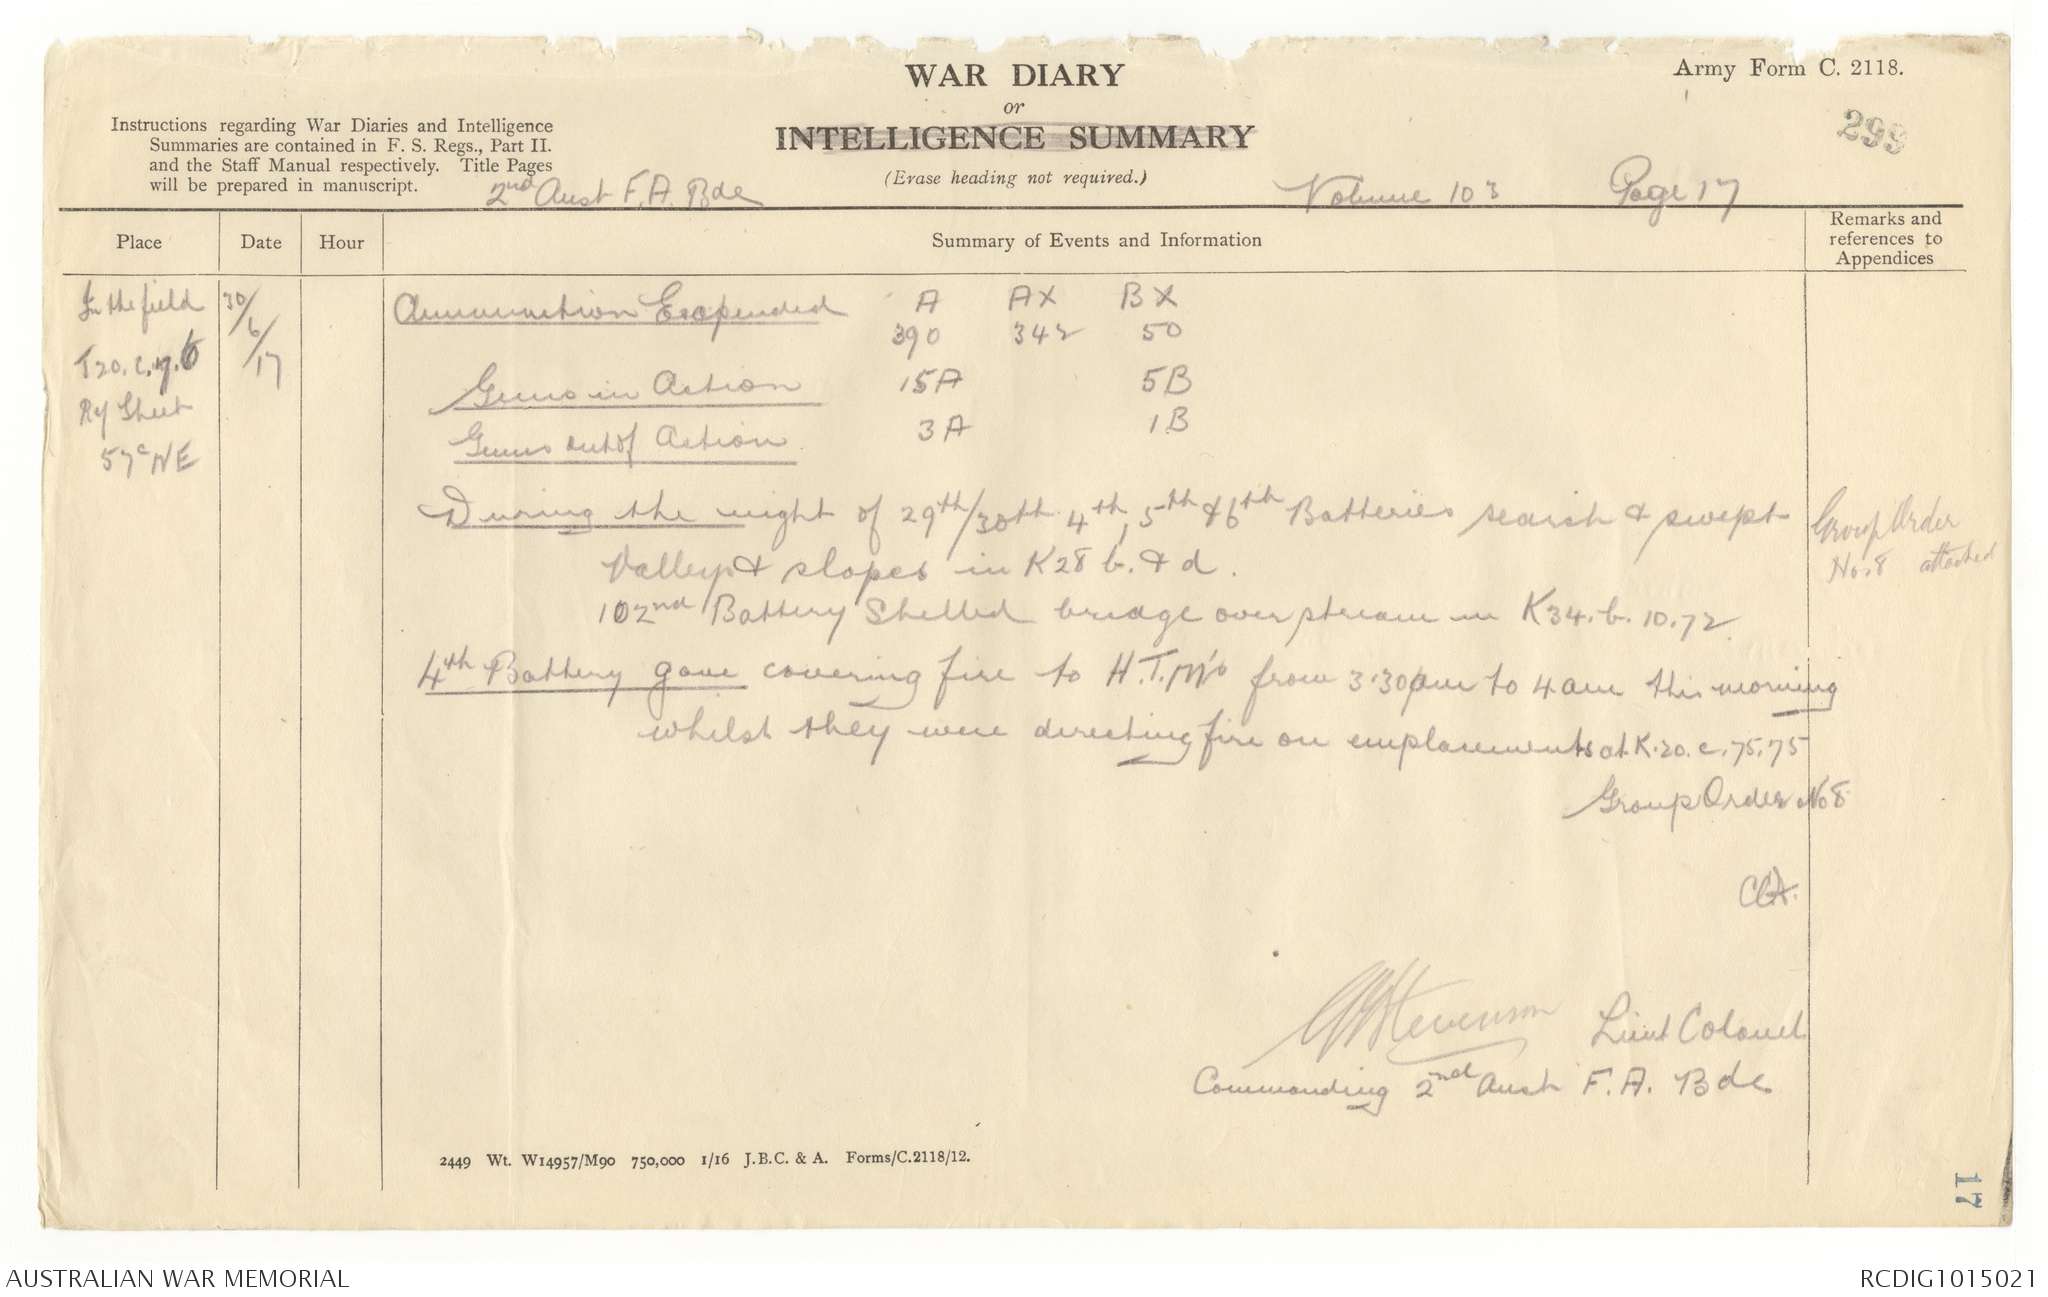 WAR DIARY
or
INTELLIGENCE SUMMARY
(Erase heading not required.)
Army Form C. 2118.
299
Instructions regarding War Diaries and Intelligence
Summaries are contained in F. S. Regs., Part II.
and the Staff Manual respectively. Title Pages
will be prepared in manuscript.
2nd Aust F.A. Bde
Volume 103 Page 17
Place Date Hour Summary of Events and Information Remarks and references to Appendices
In the field 30/6/17
T20.c.
Ry Sheet
57c NE
Ammunition Expended A AX BX
390 342 50
Guns in Action 15A 5B
Guns out of Action 3A 1B
During the night of 29th/30th 4th, 5th & 6th Batteries search & swept
Valleys & slopes in K28 b. & d.
102nd Battery Shelled bridge over stream in K34.b.10.72.
4th Battery gave covering fire to H.T.M's from 3.30am to 4am this morning
whilst they were directing fire on emplacements at K.20.c.75.75
Group Order No 8
Group Order
No. 8 attached
Stevenson Lieut Colonel
Commanding 2nd Aust F.A. Bde
2449 Wt. W14957/M90 750,000 1/16 J.B.C. & A. Forms/C.2118/12.
17
AUSTRALIAN WAR MEMORIAL
RCDIG1015021